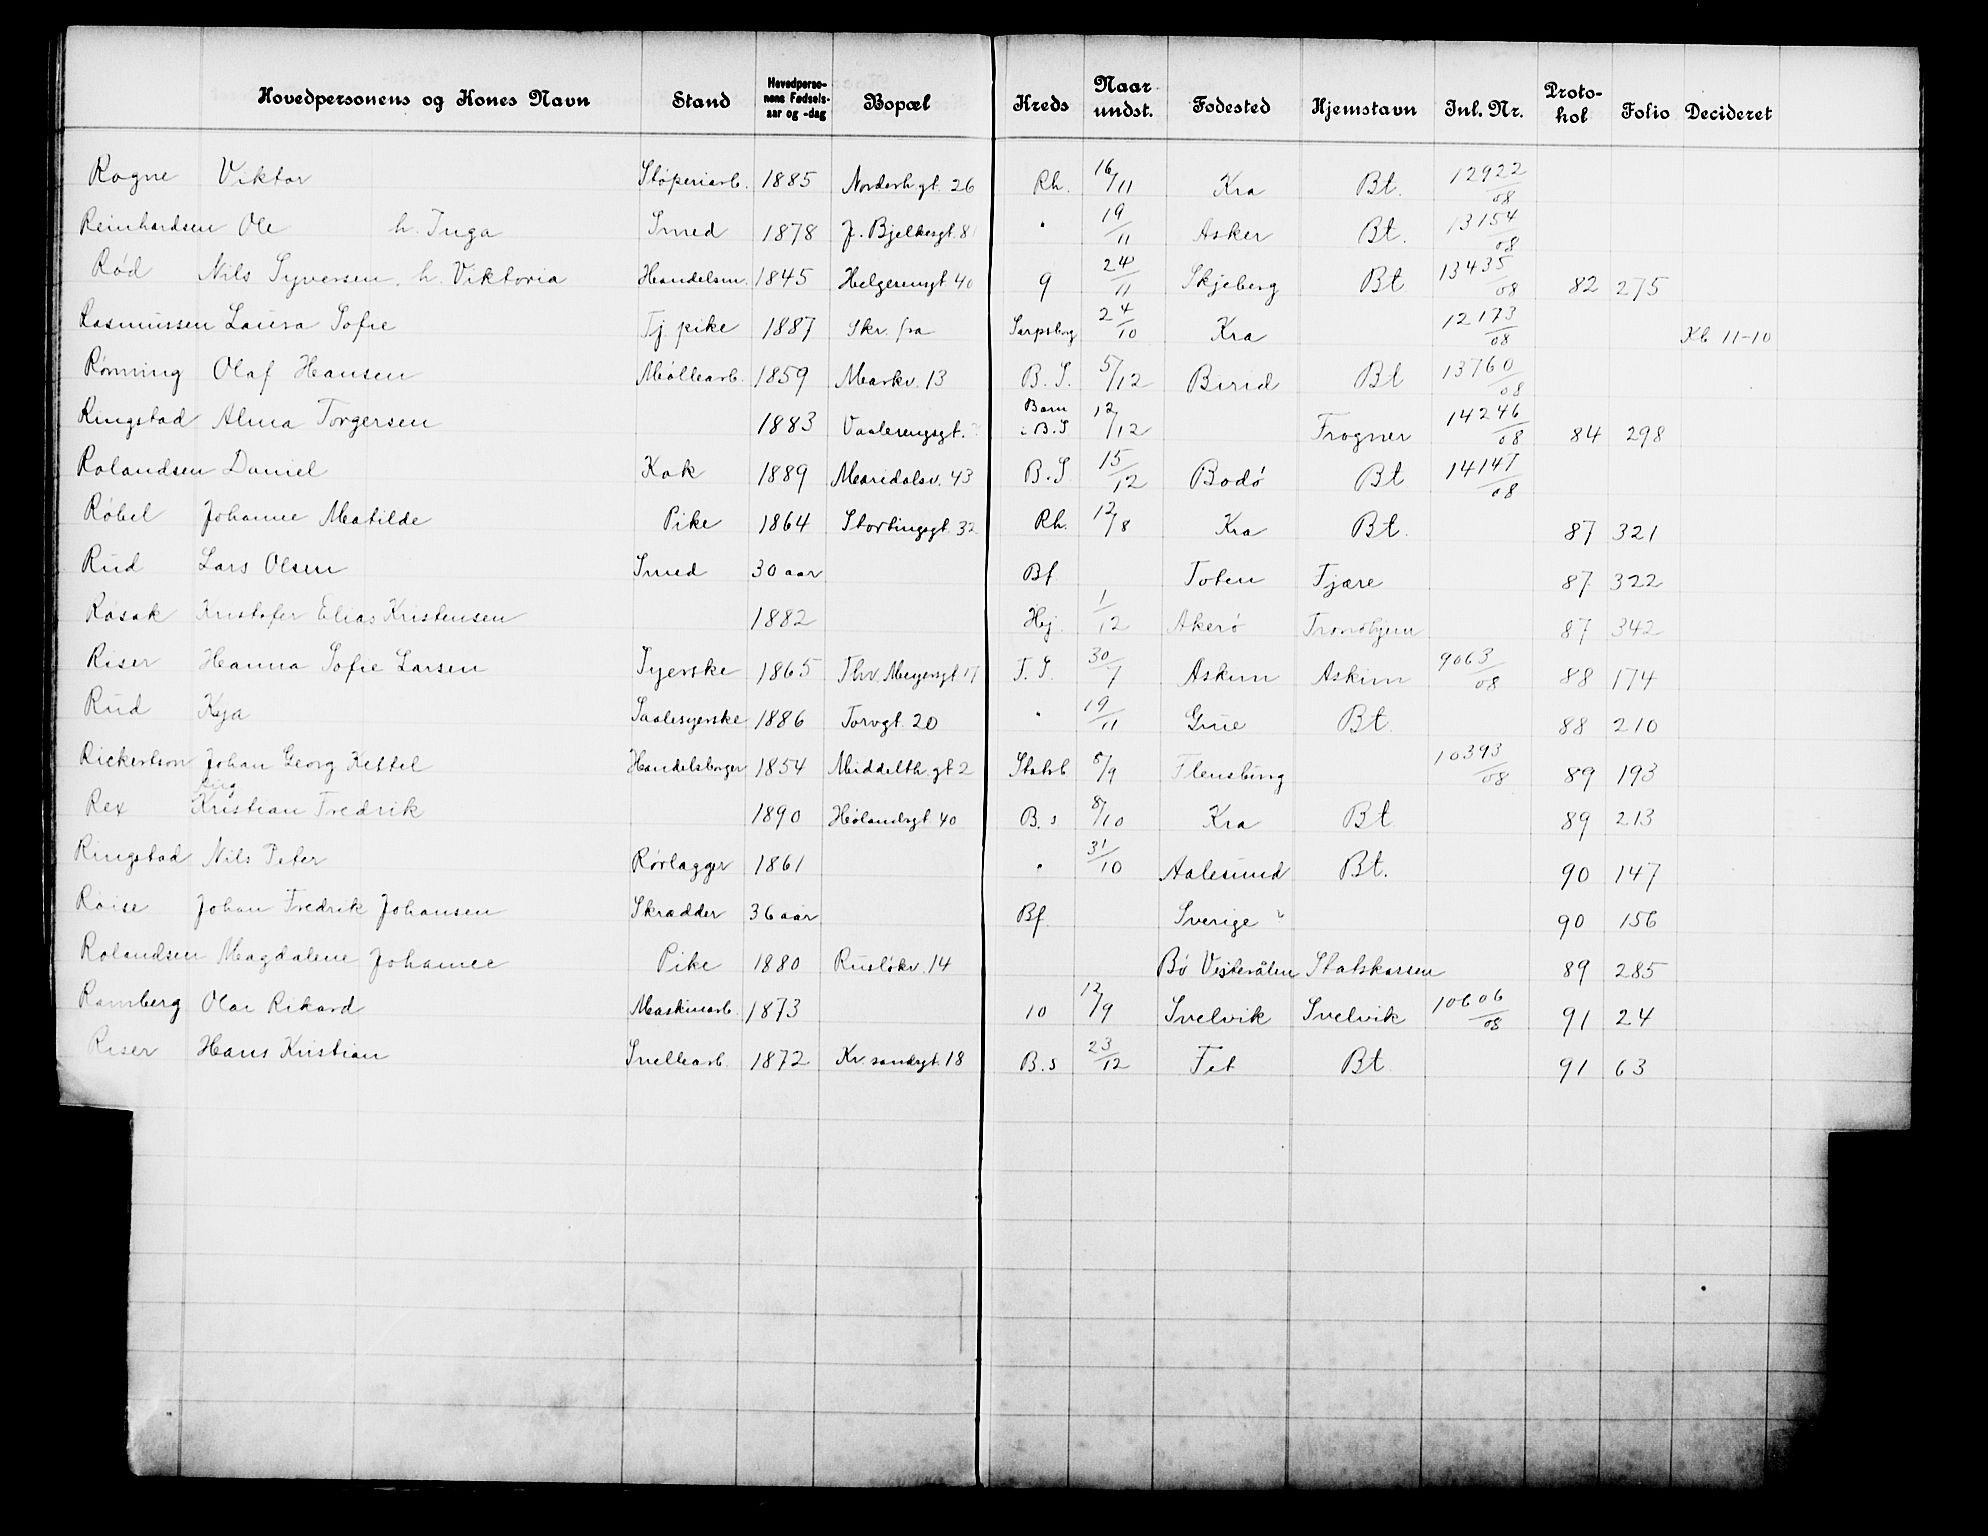 Hovedpersonens og Kones Navn Stand Hovedpersonens Fødselsaar og -dag Bopæl Kreds Naar undst. Fødested Hjemstavn Inl. Nr. Protokol Folio Decideret
Rogne Viktor Støperiarb. 1885 Norderhgt. 26 Rh. 16/11 Kra Bt. 12922/08
Reinhardsen Ole h. Inga Smed 1878 J. Bjelkesgt. 8 " 19/11 Asker Bt. 13154/08
Rød Nils Syversen. h. Viktoria Handelsm. 1845 Helgesensgt 40 9 24/11 Skjeberg Bt 13435/08 82 275
Rasmussen Laura Sofie Tj pike 1887 Skr. fra Sarpsborg 24/10 Kra 12173/08 Kb 11-10
Rønning Olaf Hansen Møllearb. 1859 Markv. 13 B. S. 5/12 Birid Bt 13760/08
Ringstad Alma Torgersen 1883 Vaalerengsgt. Barn i B.S 12/12 Frogner 14246/08 84 298
Rolandsen Daniel Kok 1889 Maridalsv. 43 B. S 15/12 Bodö Bt 14147/08
Röbel Johanne Matilde Pike 1864 Stortingsgt. 32 Rh. 12/8 Kra Bt. 87 321
Rud Lars Olsen Smed 30 aar Bf Toten Tjære 87 322
Råsok Kristofer Elias Kristensen 1882 Hej 1/12 Akerö Trondhjem 87 342
Riser Hanna Sofie Larsen Syerske 1865 Thv. Meyersgt 17 T. S. 30/7 Askim Askim 9063/08 88 174
Rud Kaja Saalesyerske 1886 Torvgt. 20 " 19/11 Grue Bt. 88 210
Rickertsen Johan Georg Kettel Handelsborger 1854 Middelth. gt 2 Statsb 8/9 Flensburg 10393/08 89 193
Rex Aug Kristian Fredrik 1890 Hølandsgt 40 B. s 8/10 Kra Bt 89 213
Ringstad Nils Peter Rørlægger 1861 " 31/10 Aalesund Bt. 90 147
Roise Johan Fredrik Johansen Skrædder 36 aar Bf Sverige ? 90 156
Rolandsen Magdalene Johanne Pike 1880 Rusløkv. 14 Bö Vesterålen Statskassen 89 285
Ramberg Olai Rikard Maskinarb. 1873 10 12/9 Svelvik Svelvik 10606/08 91 24
Riser Hans Kristian Snellearb. 1872 Kr. sandsgt. 18 B. s 23/12 Fet Bt 91 63